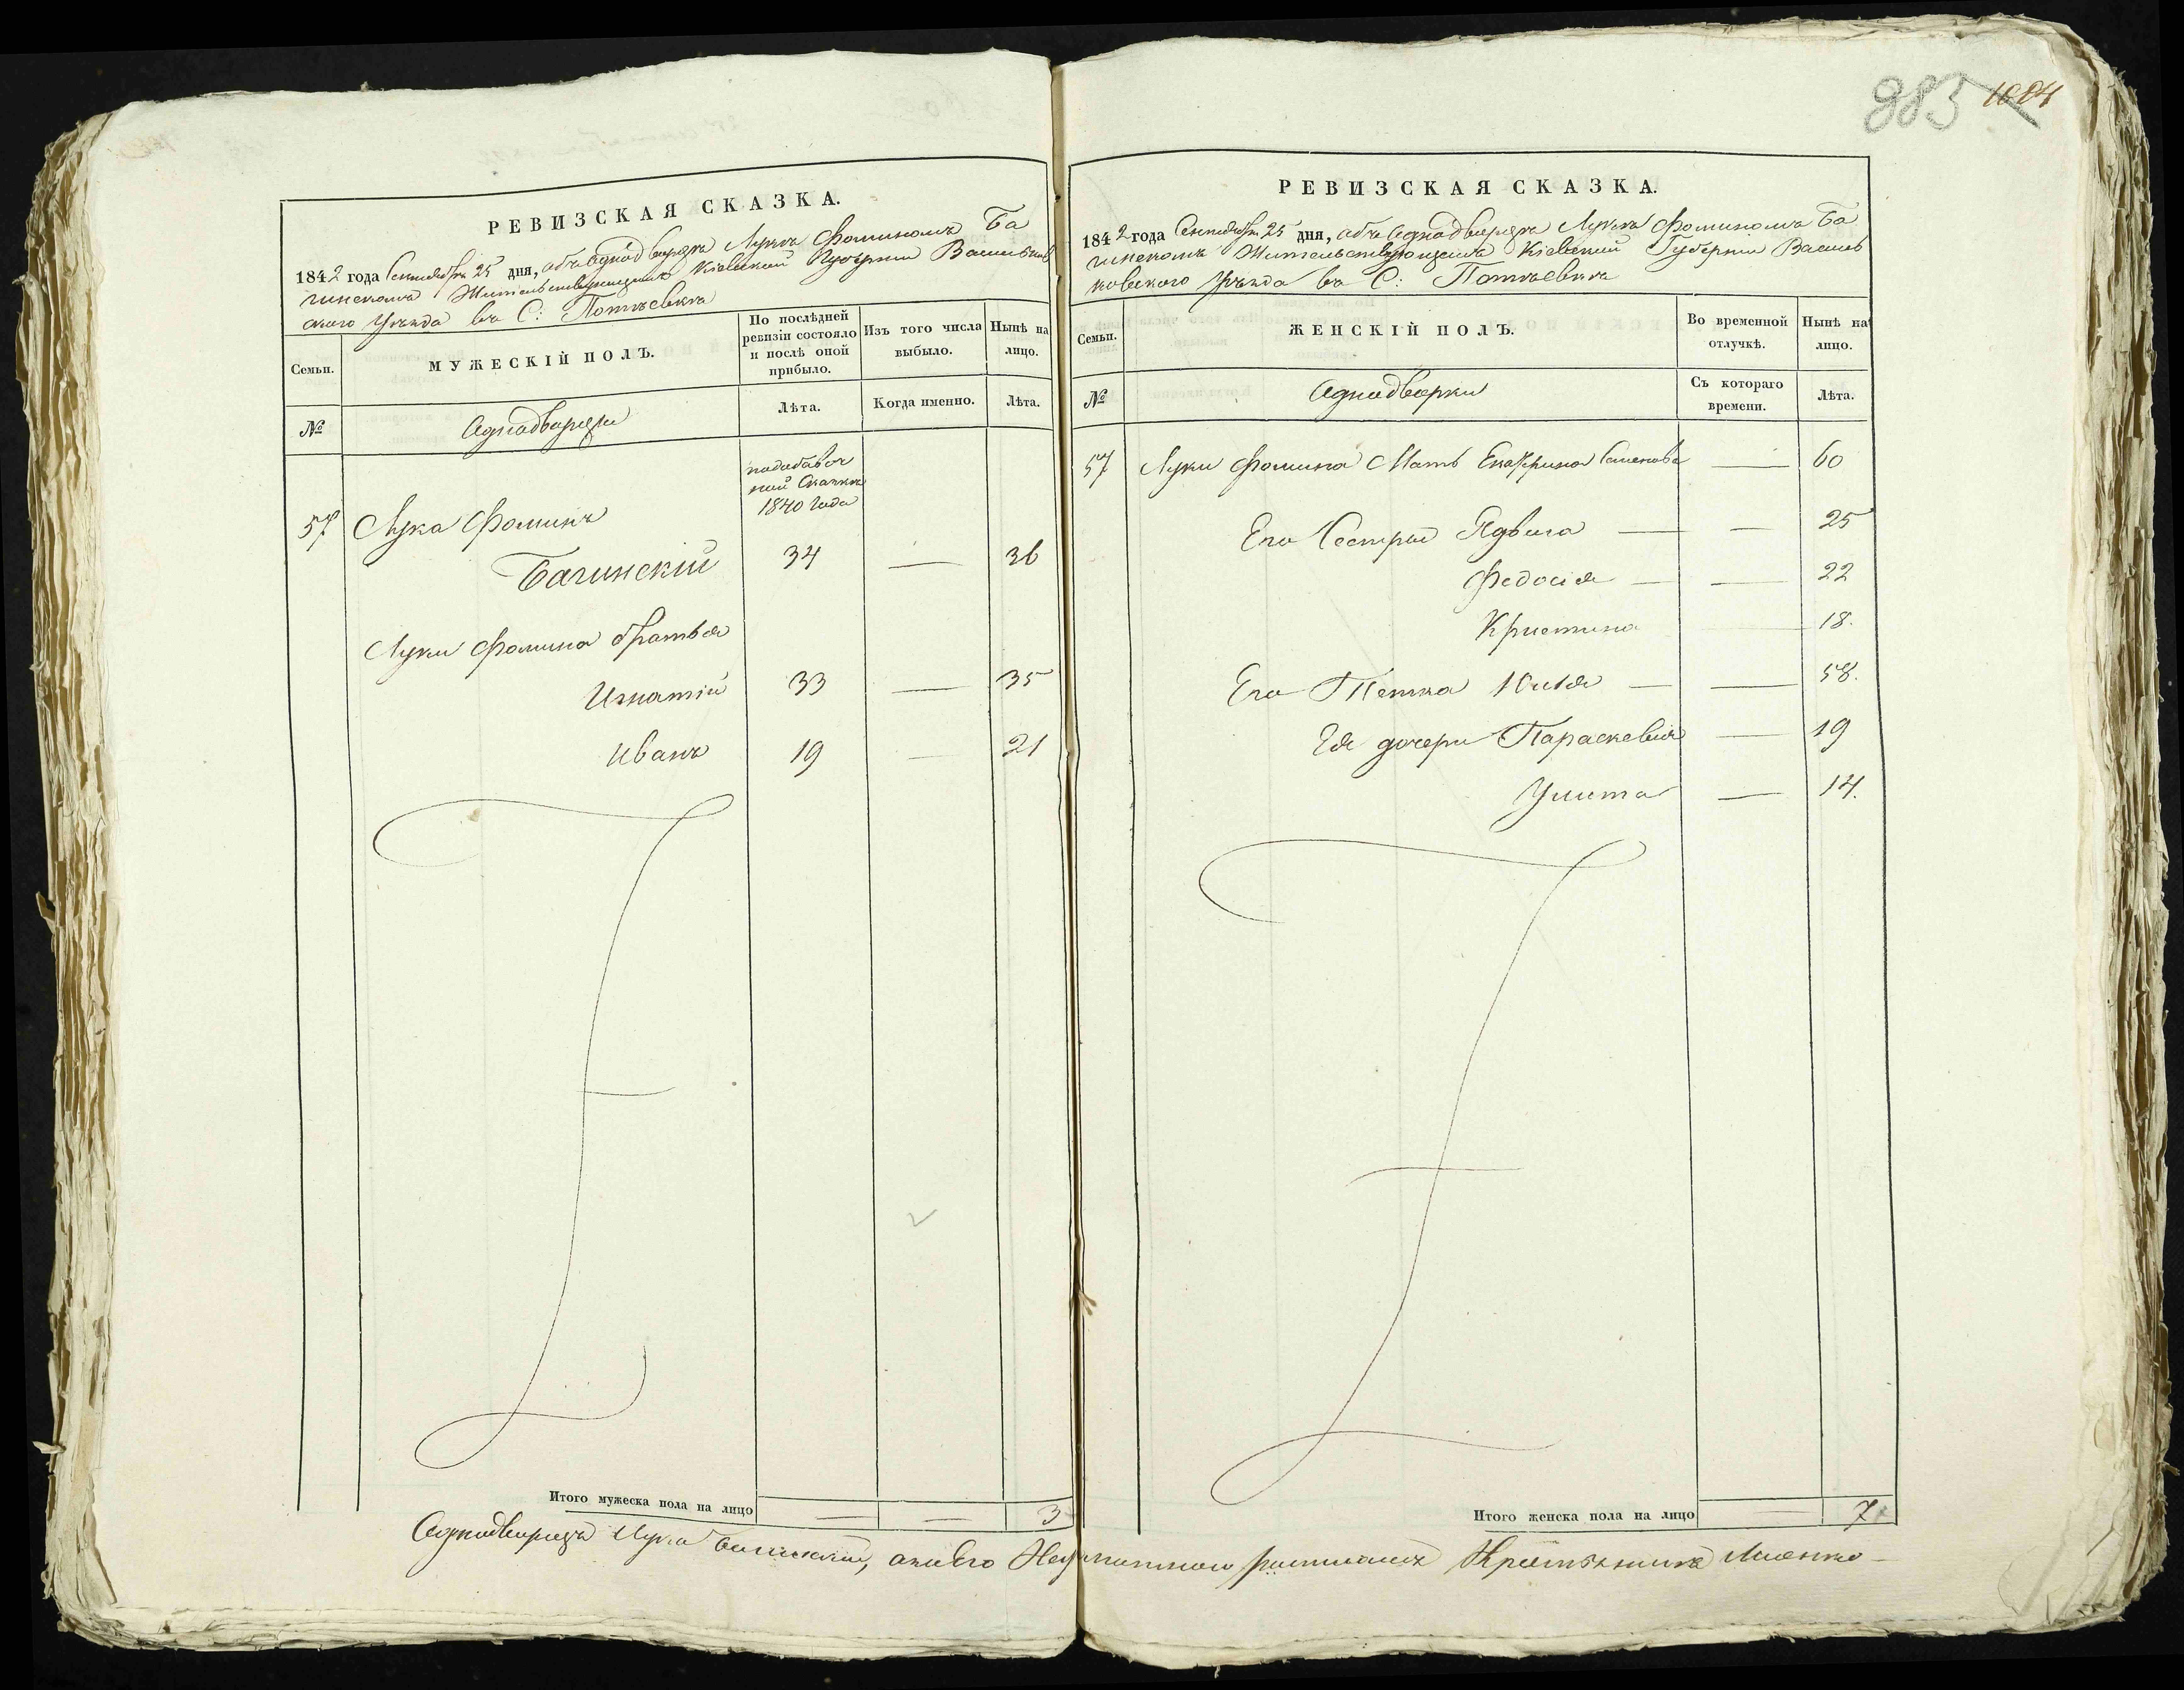 885 1084
РЕВИЗСКАЯ СКАЗКА.
1842 года Сентября 25 дня, объ Однодворце Луке Фоминомъ Ба
гинскомъ Жительствующемъ Кіевской Губерніи Васильков
ского Уезда въ С: Потіевке
Семьи.
МУЖЕСКІЙ ПОЛЪ.
По послѣдней ревизіи состояло и послѣ оной прибыло.
Изъ того числа выбыло.
Нынѣ на лицо.
№
Однодворцы
Лѣта.
Когда именно.
Лѣта.
1840 года
57 Лука Фоминъ
Багинскій 34 — 36
Луки Фомина братья
Игнатій 33 — 35
Иванъ 19 — 21
Итого мужеска пола на лицо — — 3
РЕВИЗСКАЯ СКАЗКА.
1842 года Сентября 25 дня, объ Однодворце Луке Фоминомъ Ба
гинскомъ Жительствующемъ Кіевской Губерніи Василь
ковского Уезда въ С: Потіевке
Семьи.
ЖЕНСКІЙ ПОЛЪ.
Во временной отлучкѣ.
Нынѣ на лицо.
№
Однодворки
Съ котораго времени.
Лѣта.
57 Луки Фомина Мать Екатерина Семенова — 60
Его Сестры Ядвига — — 25
Федосія — — 22
Кристина — 18.
Его Тетка Юлія — — 58.
Ея дочери Параскевія — 19
Улита — 14.
Итого женска пола на лицо — 7
Однодворецъ Лука Багинскій, а за Его